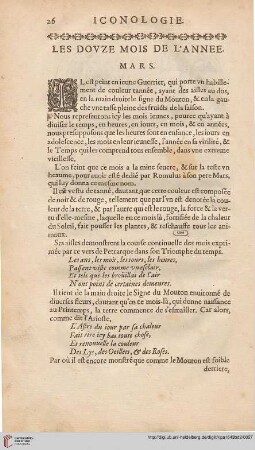 26 ICONOLOGIE.
LES DOVZE MOIS DE L'ANNEE.
MARS.
IL est peint en ieune Guerrier, qui porte vn habille-
ment de couleur tannée, ayant des aisles au dos,
en la main droite le signe du Mouton, & en la gau-
che vne tasse pleine des fruicts de la saison.
Nous representons icy les mois ieunes, pource qu'ayant à
diuiser le temps, en heures, en iours, en mois, & en années,
nous presupposons que les heures sont en enfance, les iours en
adolescence, les mois en leur ieunesse, l'année en sa virilité, &
le Temps qui les comprend tous ensemble, dans vne extreme
vieillesse.
L'on feint que ce mois a la mine seuere, & sur la teste vn
heaume, pour auoir esté dedié par Romulus à son pere Mars,
qui luy donna ce mesme nom.
Il est vestu de tanné, dautant que cette couleur est composée
de noir & de rouge, tellement que par l'vn est denotée la cou-
leur de la terre, & par l'autre qui est le rouge, la force & la ver-
tu d'elle-mesme, laquelle en ce mois là, fortifiée de la chaleur
du Soleil, fait pousser les plantes, & restchauffe tous les ani-
maux.
Ses aisles demonstrent la course continuelle des mois expri-
mée par ce vers de Petrarque dans son Triomphe du temps.
Les ans, les mois, les iours, les heures,
Passent viste comme vn
Et tels que les broüillas de l'air
N'ont point de certaines demeures.
Il tient de la main droite le Signe du Mouton enuironné de
diuerses fleurs, dautant qu'en ce mois-là, qui donne naissance
au Printemps, la terre commence de s'esmailler. Car alors,
comme dit l'Arioste,
L'Astre du iour par sa chaleur
Fait rire icy bas toute chose,
Et renouuelle la couleur
Des Lys, des Oeillets, & des Roses.
Par où il est encore monstré que comme le Mouton est foible
derriere,